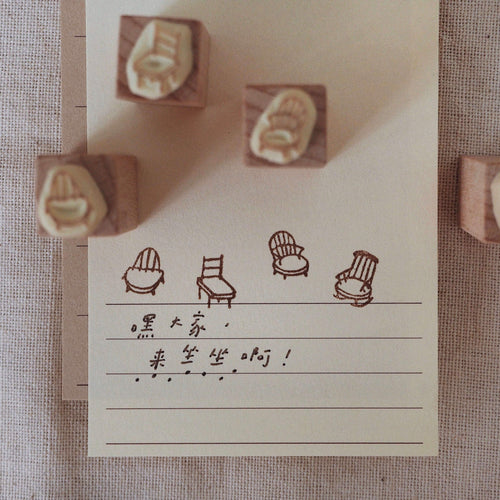 嘿大家．
来坐坐啊！